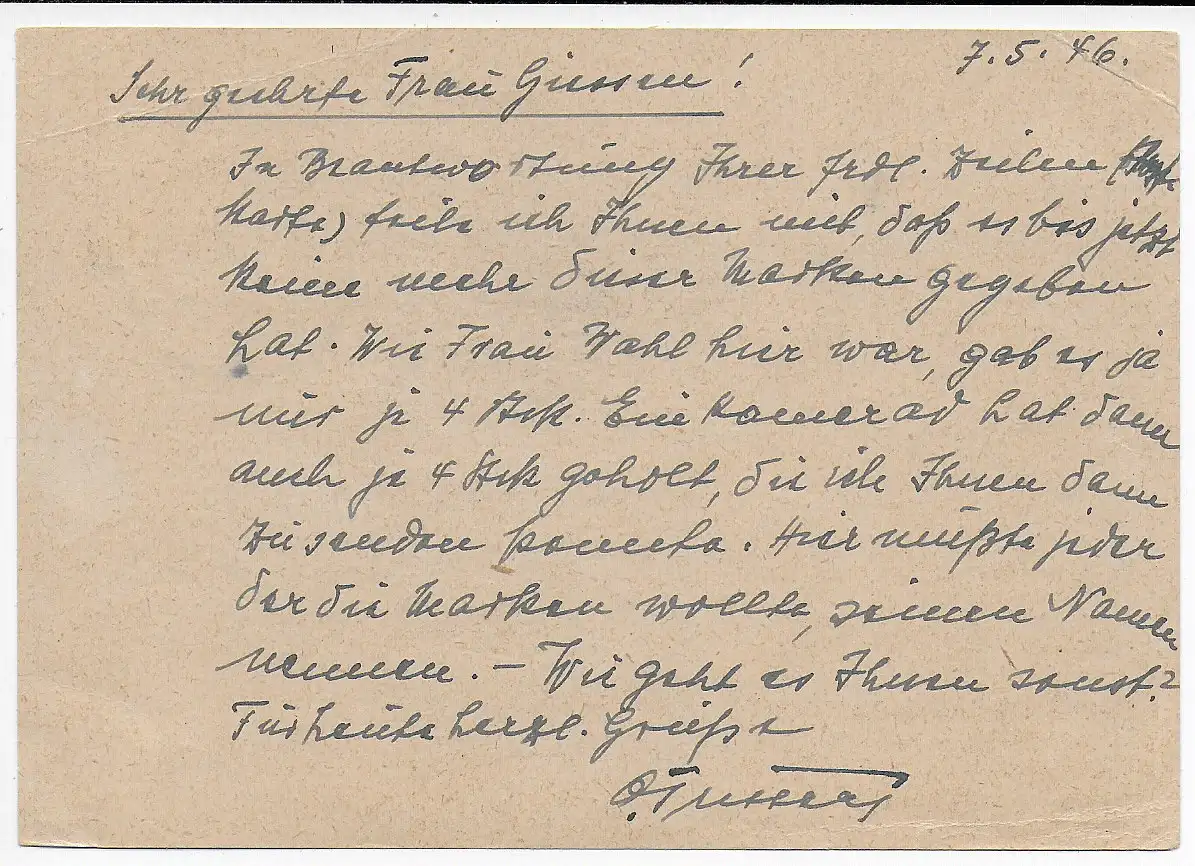 7. 5. 46.
Sehr geehrte Frau Giessen!
In Beantwortung Ihrer frdl. Zeilen
Karte) teile ich Ihnen mit, daß es bis jetzt
keine mehr dieser Marken gegeben
hat. Wie Frau Wahl hier war, gab es ja
nur je 4 Stck. Ein Kamerad hat dann
auch je 4 Stck geholt, die ich Ihnen dann
zusenden konnte. Hier mußte jeder
der die Marken wollte, seinen Namen
nennen. – Wie geht es Ihnen sonst?
Für heute herzl. Grüße